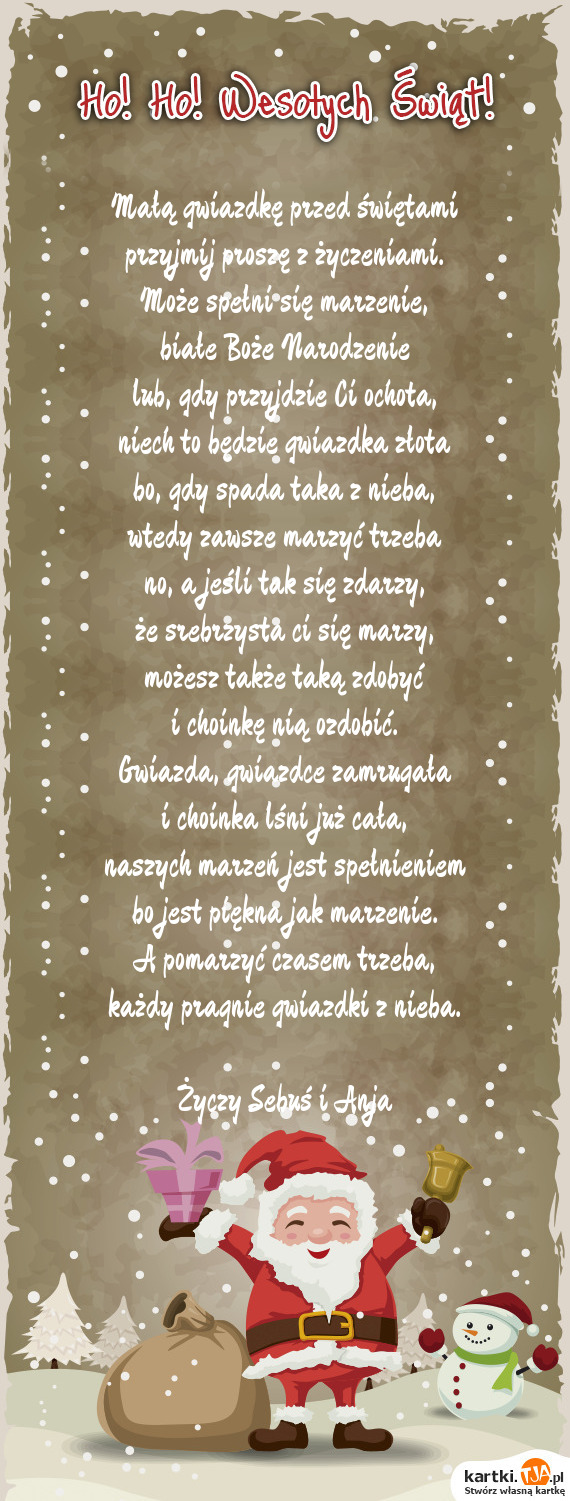 Ho! Ho! Wesołych Świąt!
Małą gwiazdkę przed świętami
przyjmij proszę z życzeniami.
Może spełni się marzenie,
białe Boże Narodzenie
lub, gdy przyjdzie Ci ochota,
niech to będzie gwiazdka złota
bo, gdy spada taka z nieba,
wtedy zawsze marzyć trzeba
no, a jeśli tak się zdarzy,
że srebrzysta ci się marzy,
możesz także taką zdobyć
i choinkę nią ozdobić.
Gwiazda, gwiazdce zamrugała
i choinka lśni już cała,
naszych marzeń jest spełnieniem
bo jest piękna jak marzenie.
A pomarzyć czasem trzeba,
każdy pragnie gwiazdki z nieba.
Życzy Sebuś i Anja
kartki.TJA.pl
Stwórz własną kartkę